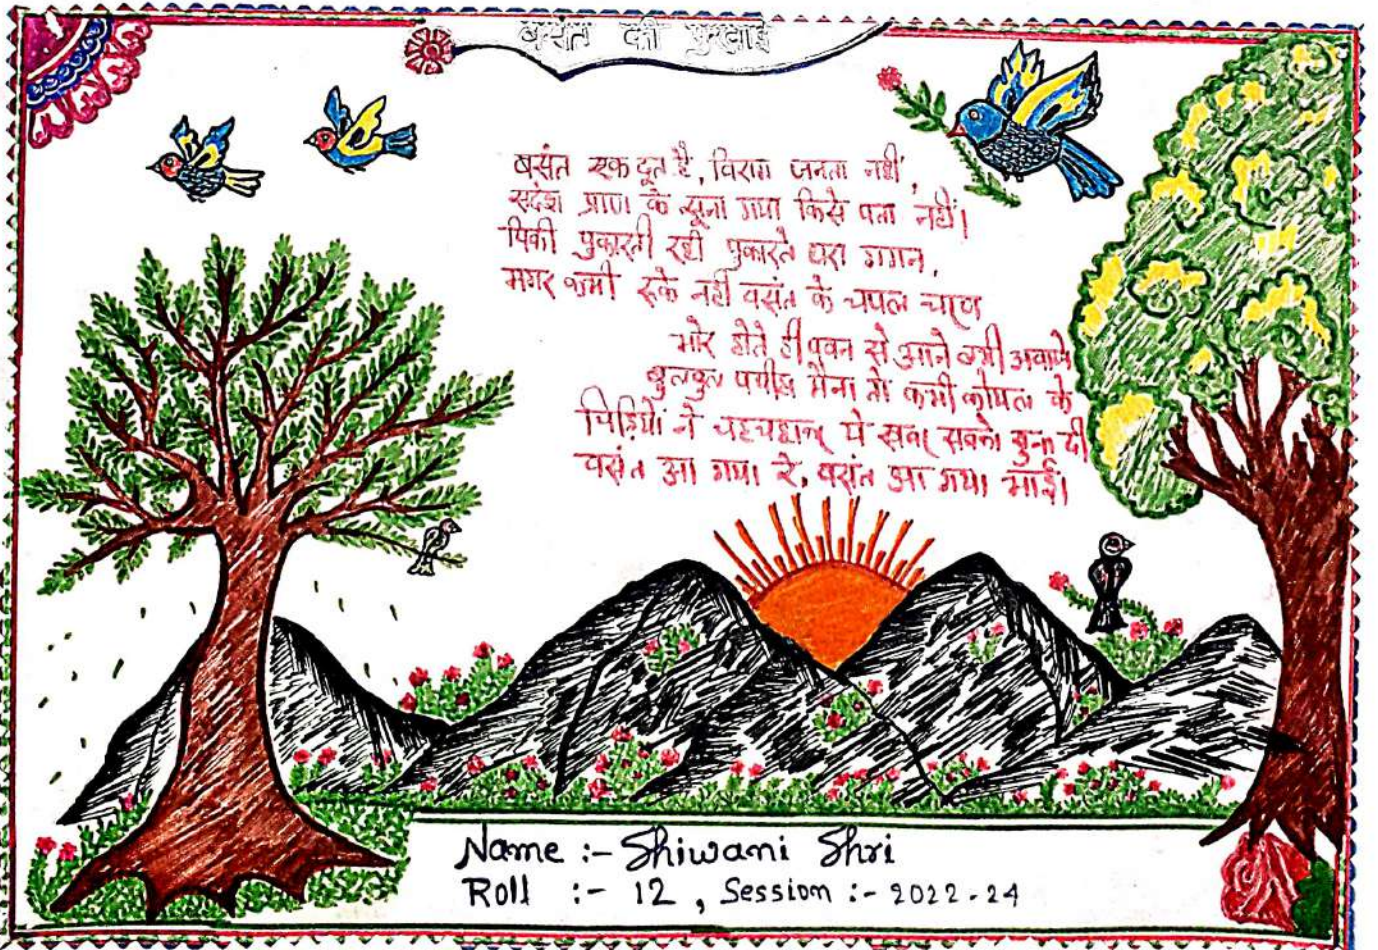 बसंत की पुरवाई
बसंत एक दूत है, विराम जनता नहीं,
संदेश प्राण के सूना गया किसे पता नहीं।
पिकी पुकारती रही पुकारते धरा गगन,
मगर कभी रुके नहीं वसंत के चपल चरण
भोर होते ही पवन से आने लगी आवाजे
बुलबुल पपीहा मैना तो कभी कोयल के
चिड़ियों ने चहचहाकर ये खबर सबको सुना दी
वसंत आ गया रे, वसंत आ गया भाई।
Name :- Shiwani Shri
Roll :- 12, Session :- 2022-24